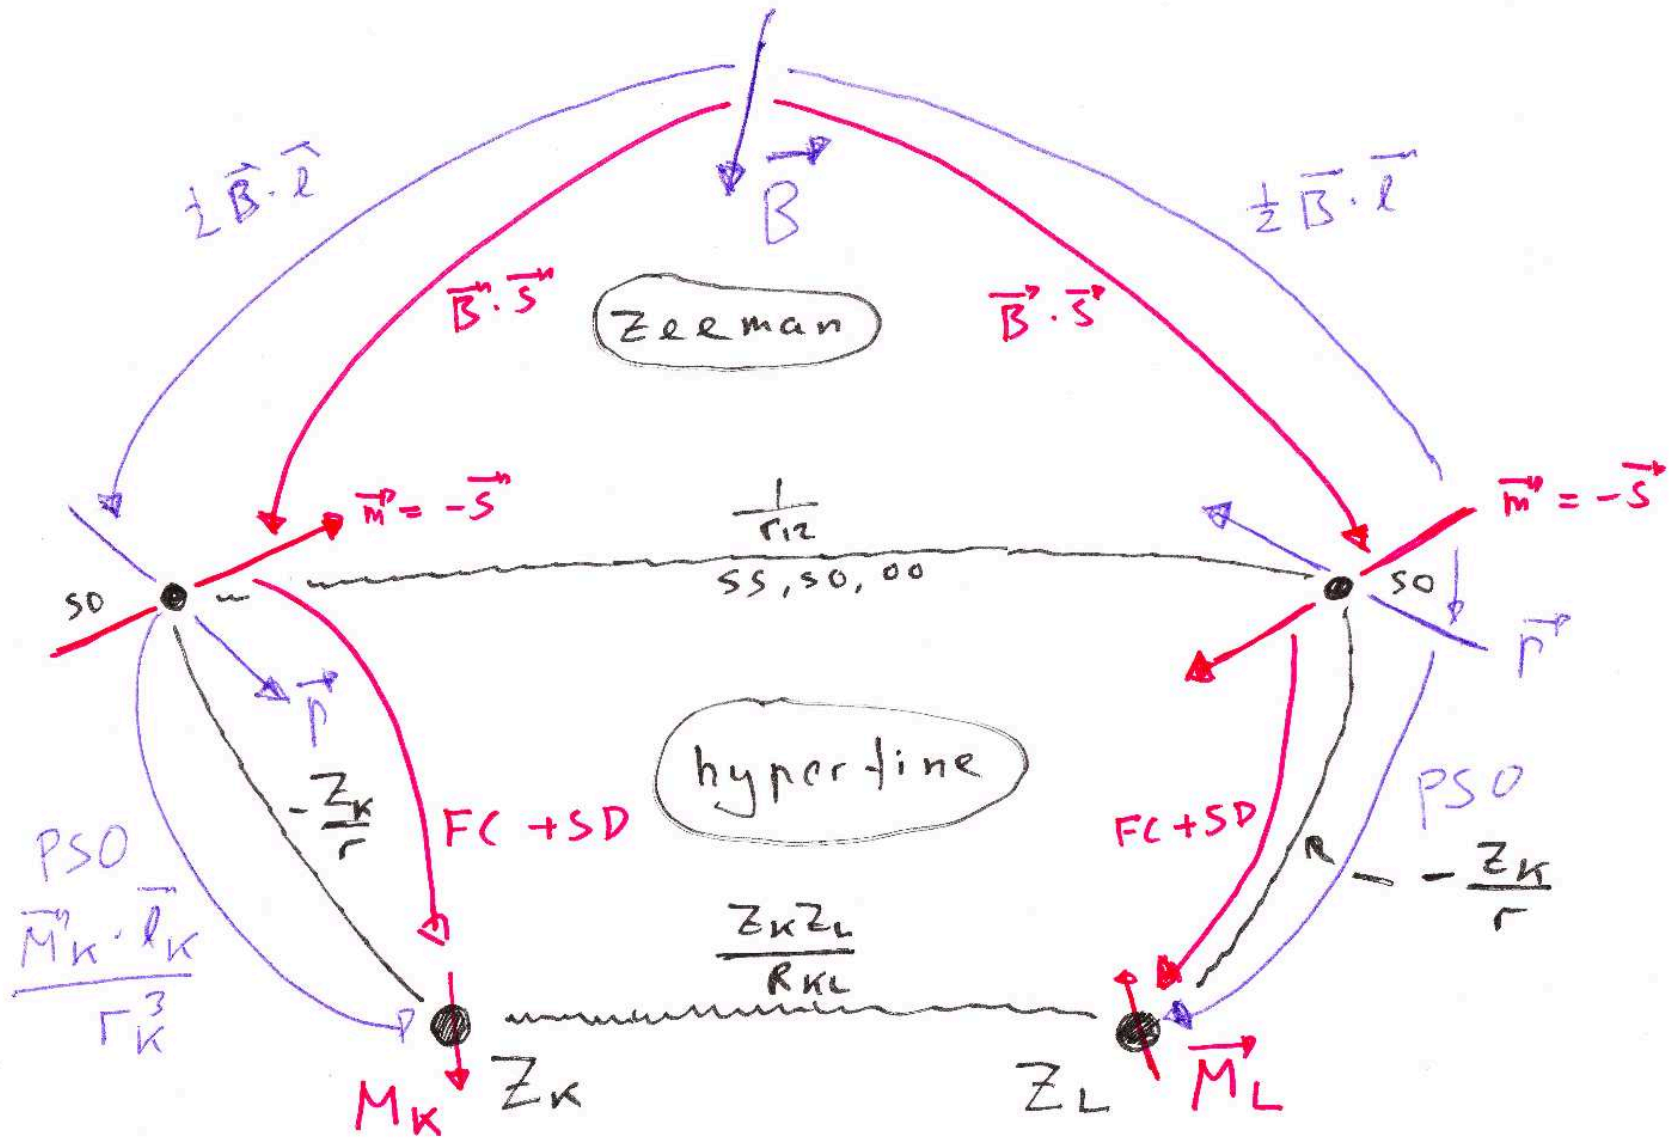 ½ B⃗·l⃗
B⃗
½ B⃗·l⃗
B⃗·s⃗
Zeeman
B⃗·s⃗
m⃗ = -s⃗
1/r₁₂
m⃗ = -s⃗
SO
SS, SO, OO
SO
p⃗
p⃗
hyperfine
-Z_K/r
FC + SD
FC + SD
PSO
PSO
M⃗_K·l⃗_K/r_K³
Z_K Z_L/R_KL
- Z_K/r
M_K
Z_K
Z_L
M⃗_L